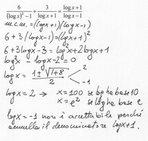 6/((log x)²-1) + 3/(log x+1) = (log x+1)/(log x-1)
m.c.m. = (log x+1)(log x-1)
6+3(log x-1)=(log x+1)²
6+3log x-3=log²x+2log x+1
log²x - log x - 2 = 0
log x = (1±√(1+8))/2 < 2 -1
log x = 2 → x=100 se log ha base 10
x=e² se log ha base e
log x = -1 non è accettabile perché
annulla il denominatore log x+1.